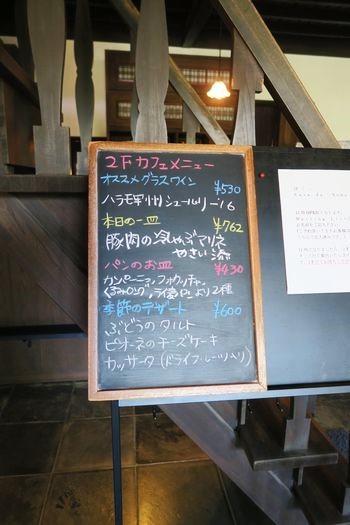 2Fカフェメニュー
オススメグラスワイン
¥530
ハラモ甲州シュールリー'16
本日の一皿
¥762
豚肉の冷しゃぶマリネ
やさい添
パンのお皿
¥430
カンパーニュ,フォカッチャ,
くるみロング,ライ麦パンより2種
季節のデザート
¥600
ぶどうのタルト
ピオーネのチーズケーキ
カッサータ(ドライフルーツ入り)